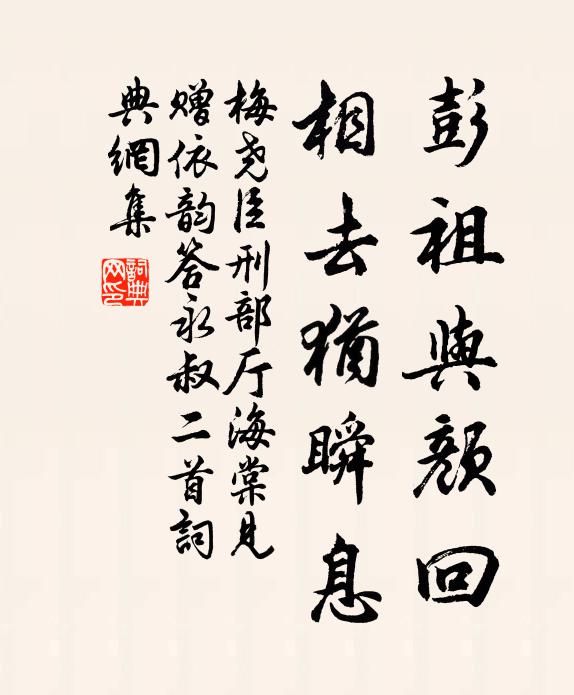 彭祖與顏回
相去猶瞬息
梅尧臣刑部厅海棠見
贈依韵答永叔二首詞
典網集
詞典
网印